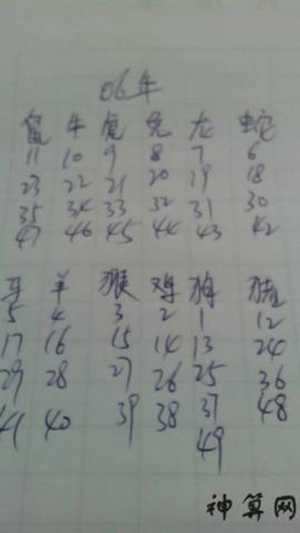 06年
鼠 牛 虎 兔 龙 蛇
11 10 9 8 7 6
23 22 21 20 19 18
35 34 33 32 31 30
47 46 45 44 43 42
马 羊 猴 鸡 狗 猪
5 4 3 2 1 12
17 16 15 14 13 24
29 28 27 26 25 36
41 40 39 38 37 48
49
神算网